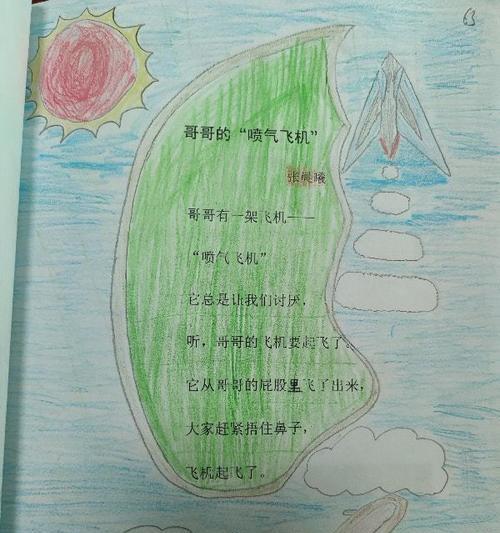 63
哥哥的“喷气飞机”
哥哥有一架飞机——
“喷气飞机”
它总是让我们讨厌，
听，哥哥的飞机要起飞了。
它从哥哥的屁股里飞了出来，
大家赶紧捂住鼻子，
飞机起飞了。